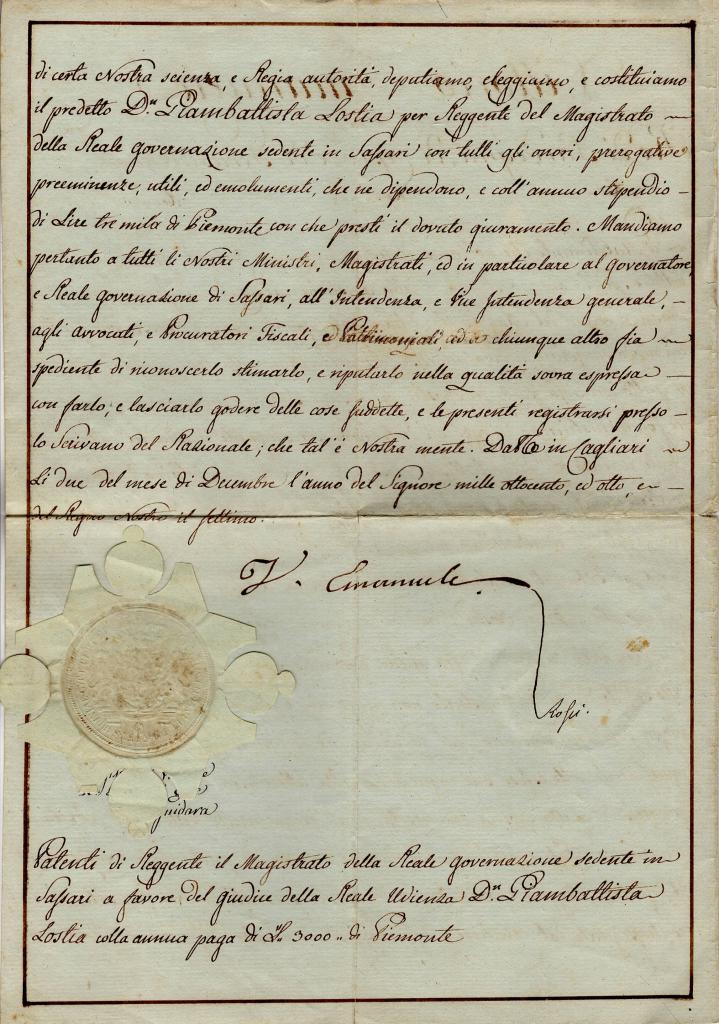 di certa Nostra scienza, e Regia autorità, deputiamo, eleggiamo, e costituiamo
il predetto D.n Giambattista Lostia per Reggente del Magistrato
della Reale governazione sedente in Sassari con tutti gli onori, prerogative
preeminenze, utili, ed emolumenti, che ne dipendono, e coll'annuo stipendio
di Lire tre mila di Piemonte con che presti il dovuto giuramento. Mandiamo
pertanto a tutti li Nostri Ministri, Magistrati, ed in particolare al governatore,
e Reale governazione di Sassari, all'Intendenza, e Vice Intendenza generale,
agli avvocati, e Procuratori Fiscali, e Pattrimoniali, ad a chiunque altro fia
spediente di riconoscerlo stimarlo, e riputarlo nella qualità sovra espressa
con farlo, e lasciarlo godere delle cose suddette, e le presenti registrarsi presso
lo Scrivano del Razionale; che tal'è Nostra mente. Datt. in Cagliari
li due del mese di Decembre l'anno del Signore mille ottocento, ed otto, e
del Regno Nostro il settimo.
V. Emanuele
Rossi.
Patenti di Reggente il Magistrato della Reale governazione sedente in
Sassari a favore del giudice della Reale Udienza D.n Giambattista
Lostia colla annua paga di L. 3000 di Piemonte